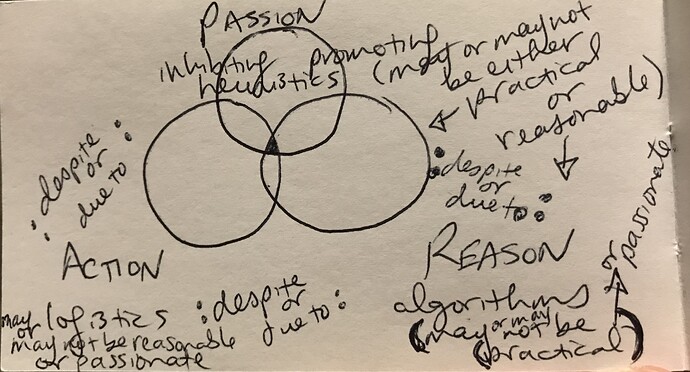 PASSION
inhibiting promoting
heuristics (may or may not
be either
practical
or
reasonable)
: despite
or
due to :
: despite
or
due to :
ACTION
REASON
logistics
may or
may not be reasonable
or passionate
: despite
or
due to :
algorithms
(may or may
not be
practical)
or
passionate